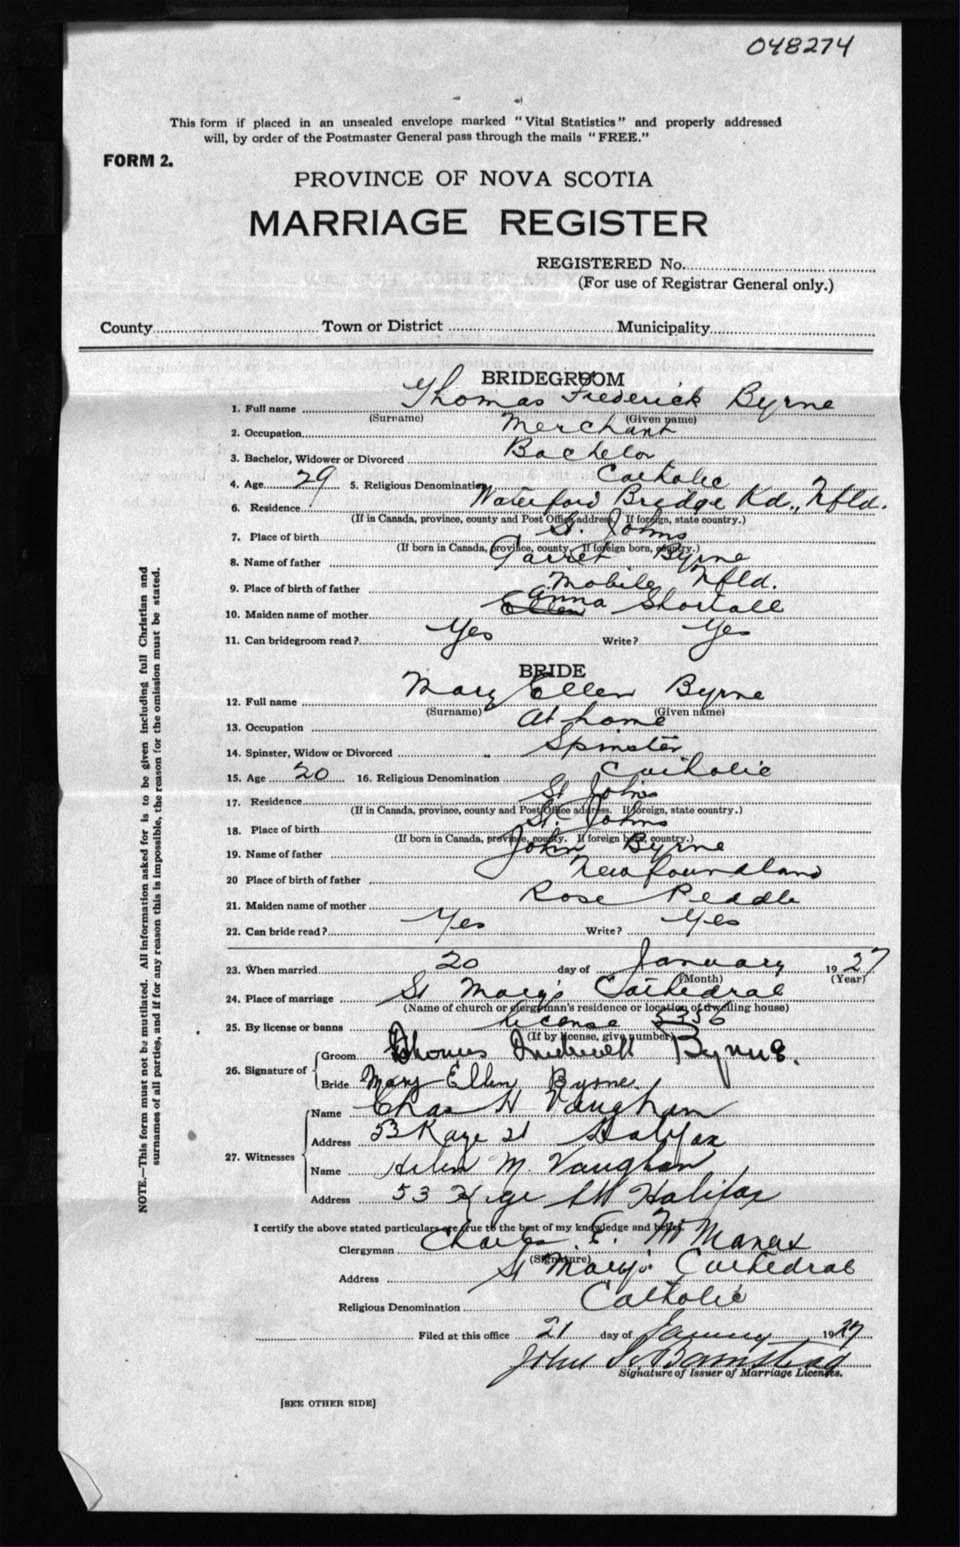 048274
This form if placed in an unsealed envelope marked "Vital Statistics" and properly addressed
will, by order of the Postmaster General pass through the mails "FREE."
FORM 2.
PROVINCE OF NOVA SCOTIA
MARRIAGE REGISTER
REGISTERED No.
(For use of Registrar General only.)
County Town or District Municipality
BRIDEGROOM
1. Full name Thomas Frederick Byrne
(Surname) (Given name)
2. Occupation Merchant
3. Bachelor, Widower or Divorced Bachelor
4. Age 29 5. Religious Denomination Catholic
6. Residence Waterford Bridge Rd., Nfld.
(If in Canada, province, county and Post Office address. If foreign, state country.)
7. Place of birth St. Johns
(If born in Canada, province, county. If foreign born, country.)
8. Name of father Garret Byrne
9. Place of birth of father Mobile Nfld.
10. Maiden name of mother Ellen Anna Shortall
11. Can bridegroom read? Yes Write? Yes
BRIDE
12. Full name Mary Ellen Byrne
(Surname) (Given name)
13. Occupation At home
14. Spinster, Widow or Divorced Spinster
15. Age 20 16. Religious Denomination Catholic
17. Residence St Johns
(If in Canada, province, county and Post Office address. If foreign, state country.)
18. Place of birth St. Johns
(If born in Canada, province, county. If foreign born, country.)
19. Name of father John Byrne
20 Place of birth of father Newfoundland
21. Maiden name of mother Rose Peddle
22. Can bride read? Yes Write? Yes
23. When married 20 day of January 1927
(Month) (Year)
24. Place of marriage St Mary's Cathedral
(Name of church or clergyman's residence or location of dwelling house)
25. By license or banns License 5356
(If by license, give number)
26. Signature of Groom Thomas Frederick Byrne.
Bride Mary Ellen Byrne.
27. Witnesses Name Chas H Vaughan
Address 53 Kaye St Halifax
Name Helen M. Vaughan
Address 53 Halifax
I certify the above stated particulars are true to the best of my knowledge and belief.
Clergyman Charles E. McManus
(Signature)
Address St Mary's Cathedral
Religious Denomination Catholic
Filed at this office 21 day of January 1927
John
Signature of Issuer of Marriage Licenses.
[SEE OTHER SIDE]
NOTE.—This form must not be mutilated. All information asked for is to be given including full Christian and
surnames of all parties, and if for any reason this is impossible, the reason for the omission must be stated.